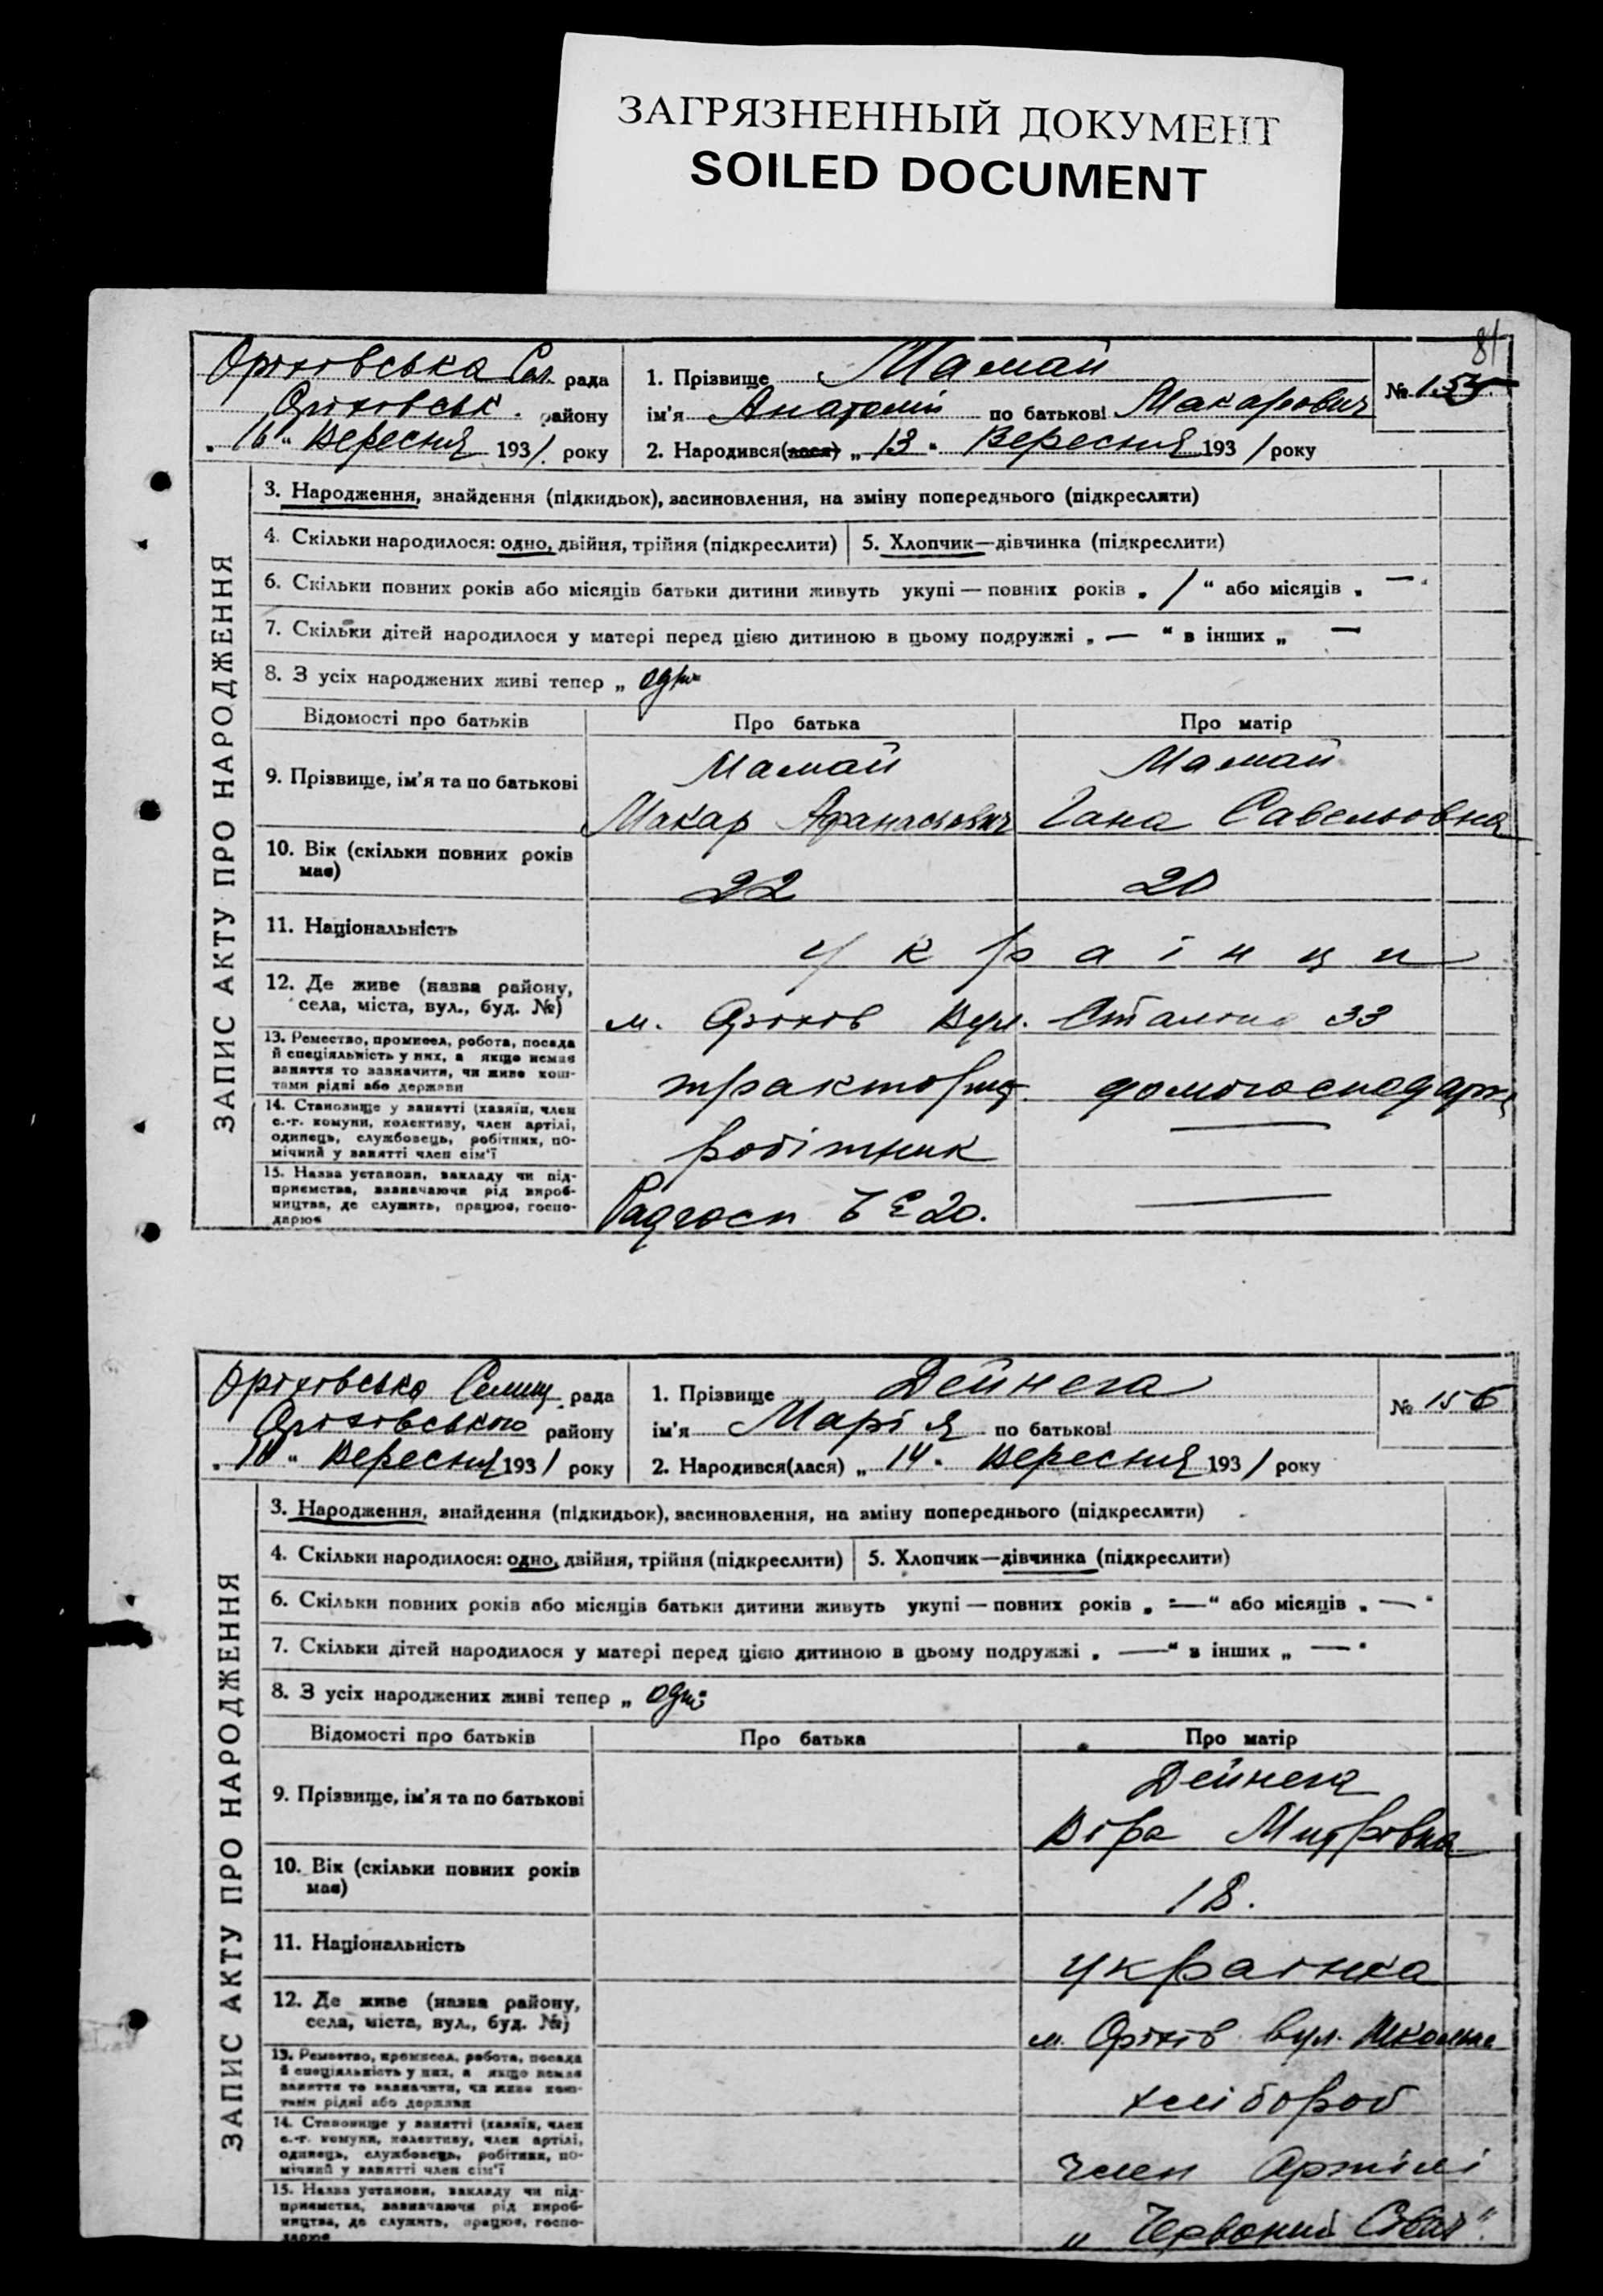 ЗАГРЯЗНЕННЫЙ ДОКУМЕНТ
SOILED DOCUMENT
81
Оріхівська Сел. рада
Оріхівськ. району
„16“ Вересня 1931. року
1. Прізвище Мамай
ім'я Анатолій по батькові Макарович
2. Народився(лася) „13“ Вересня 1931 року
№ 155
ЗАПИС АКТУ ПРО НАРОДЖЕННЯ
3. Народження, знайдення (підкидьок), засиновлення, на зміну попереднього (підкреслити)
4. Скільки народилося: одно, двійня, трійня (підкреслити) 5. Хлопчик—дівчинка (підкреслити)
6. Скільки повних років або місяців батьки дитини живуть укупі — повних років „ 1 “ або місяців „ — “
7. Скільки дітей народилося у матері перед цією дитиною в цьому подружжі „ — “ в інших „ —
8. З усіх народжених живі тепер „ одно
Відомості про батьків Про батька Про матір
9. Прізвище, ім'я та по батькові
Мамай Мамай
Макар Афанасьевич Гана Савельовна
10. Вік (скільки повних років має) 22 20
11. Національність українци
12. Де живе (назва району, села, міста, вул., буд. №)
м. Оріхів Вул. Сталіна 33
13. Ремество, промисел, робота, посада
й спеціяльність у них, а якщо немає
заняття то зазначити, чи живе кош-
тами рідні або держави
тракторист. домогосподарка
14. Становище у занятті (хазяїн, член
с.-г. комуни, колективу, член артілі,
одинець, службовець, робітник, по-
мічний у занятті член сім'ї
робітник —
15. Назва установи, закладу чи під-
приємства, зазначаючи рід вироб-
ництва, де служить, працює, госпо-
дарює
Радгосп 20. —
Оріхівська Селищ. рада
Оріхівського району
„16“ Вересня 1931 року
1. Прізвище Дейнега
ім'я Марія по батькові
2. Народився(лася) „14“ Вересня 1931 року
№ 156
ЗАПИС АКТУ ПРО НАРОДЖЕННЯ
3. Народження, знайдення (підкидьок), засиновлення, на зміну попереднього (підкреслити)
4. Скільки народилося: одно, двійня, трійня (підкреслити) 5. Хлопчик—дівчинка (підкреслити)
6. Скільки повних років або місяців батьки дитини живуть укупі — повних років „ — “ або місяців „ — “
7. Скільки дітей народилося у матері перед цією дитиною в цьому подружжі „ — “ в інших „ — “
8. З усіх народжених живі тепер „ одно
Відомості про батьків Про батька Про матір
9. Прізвище, ім'я та по батькові
Дейнега
Віра Митрівна
10. Вік (скільки повних років має) 18.
11. Національність українка
12. Де живе (назва району, села, міста, вул., буд. №)
м. Оріхів вул. Школьна
13. Ремество, промисел, робота, посада
й спеціяльність у них, а якщо немає
заняття то зазначити, чи живе кош-
тами рідні або держави
хлібороб
14. Становище у занятті (хазяїн, член
с.-г. комуни, колективу, член артілі,
одинець, службовець, робітник, по-
мічний у занятті член сім'ї
член Артілі
15. Назва установи, закладу чи під-
приємства, зазначаючи рід вироб-
ництва, де служить, працює, госпо-
дарює
„Червоний